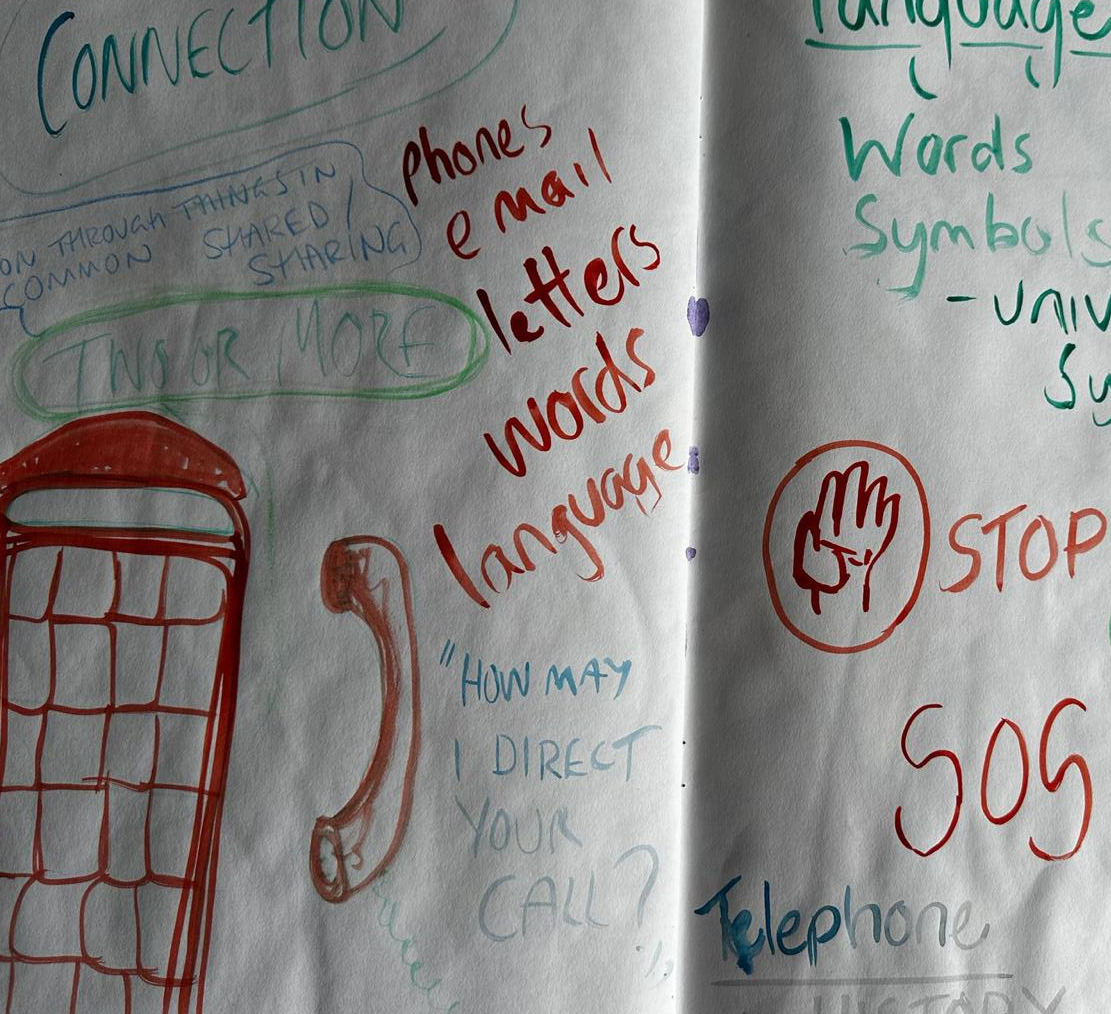 CONNECTION
ON THROUGH THINGS IN
COMMON SHARED/
SHARING
TWO OR MORE
phones
email
letters
words
language
"HOW MAY
I DIRECT
YOUR
CALL?"
language
Words
Symbols
- UNIV
Sy
STOP
SOS
Telephone
HISTORY